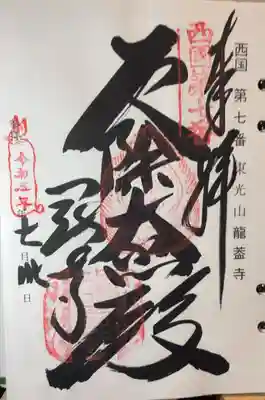 西国 第七番 東光山龍蓋寺
奉拝
西国第七番
厄除大悲殿
令和三年
七月 日